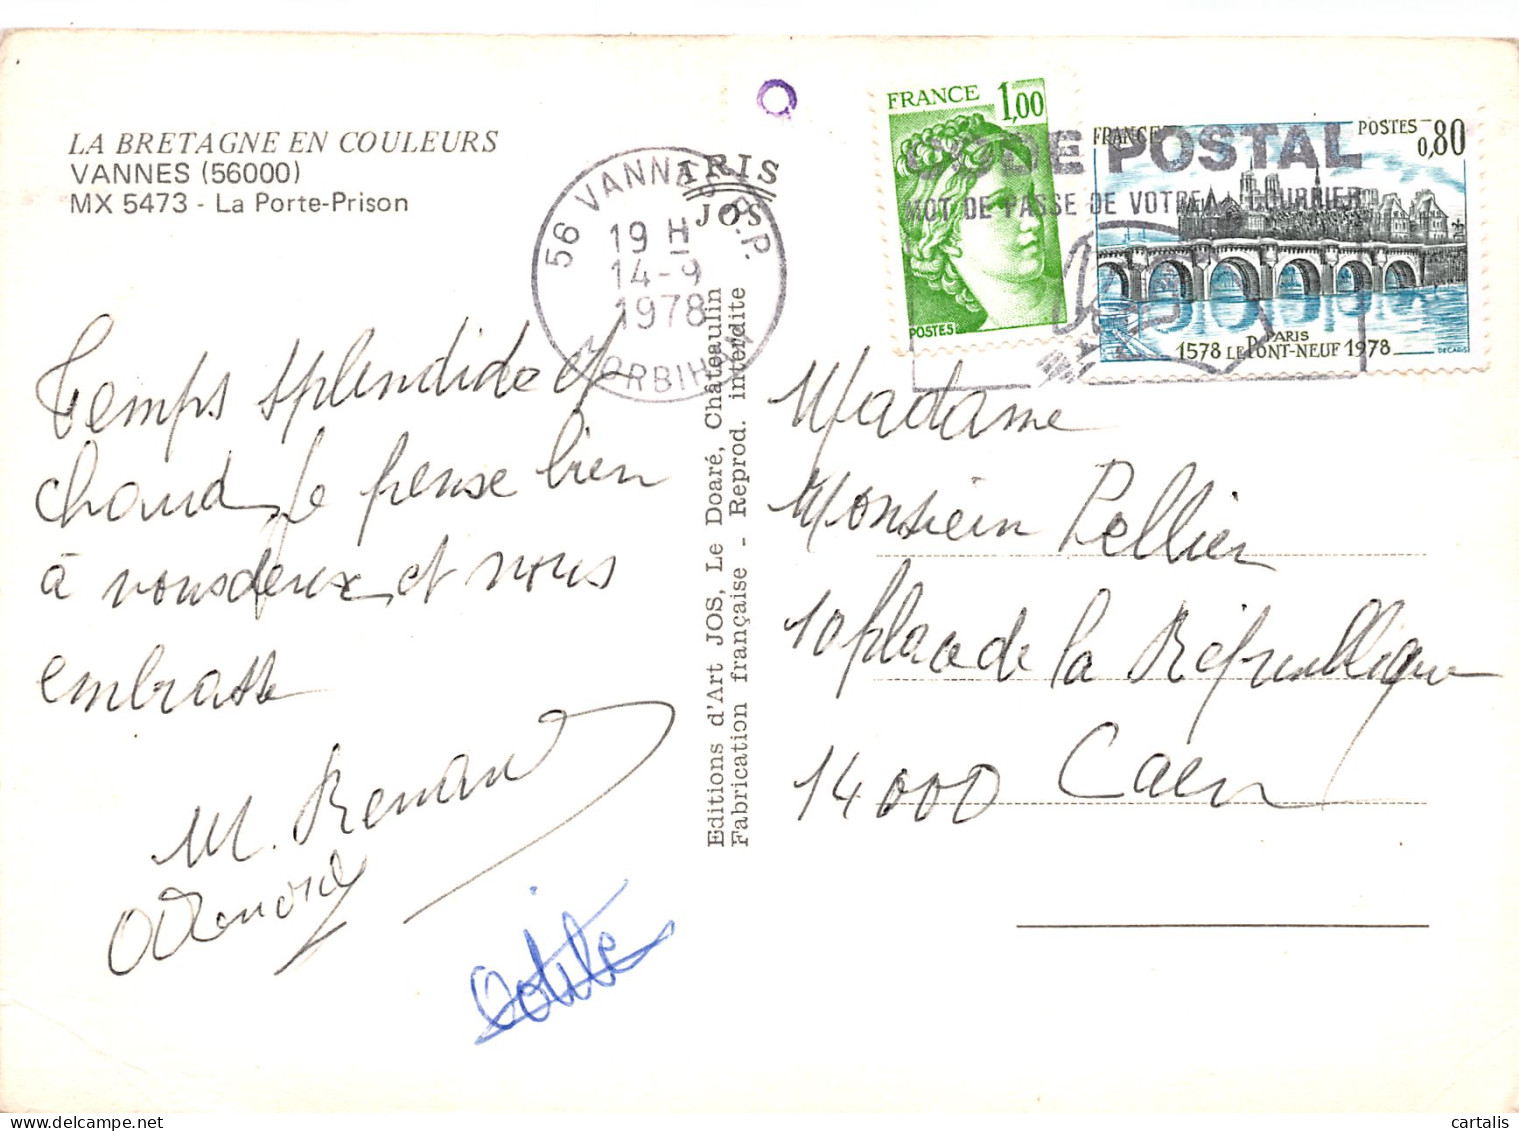 LA BRETAGNE EN COULEURS
VANNES (56000)
MX 5473 - La Porte-Prison
Temps splendide et
chaud, Je pense bien
à vous deux et nous
embrasse
M. Renard
IRIS
JOS
56 VANNES R.P.
19 H
14-9
1978
MORBIHAN
Editions d'Art JOS, Le Doaré, Châteaulin
Fabrication française - Reprod. interdite
FRANCE 1,00
POSTES
CODE POSTAL
MOT DE PASSE DE VOTRE COURRIER
FRANCE POSTES 0,80
PARIS
1578 LE PONT-NEUF 1978
DECARIS
Madame
Monsieur Pellier
10 place de la République
14000 Caen
cartalis